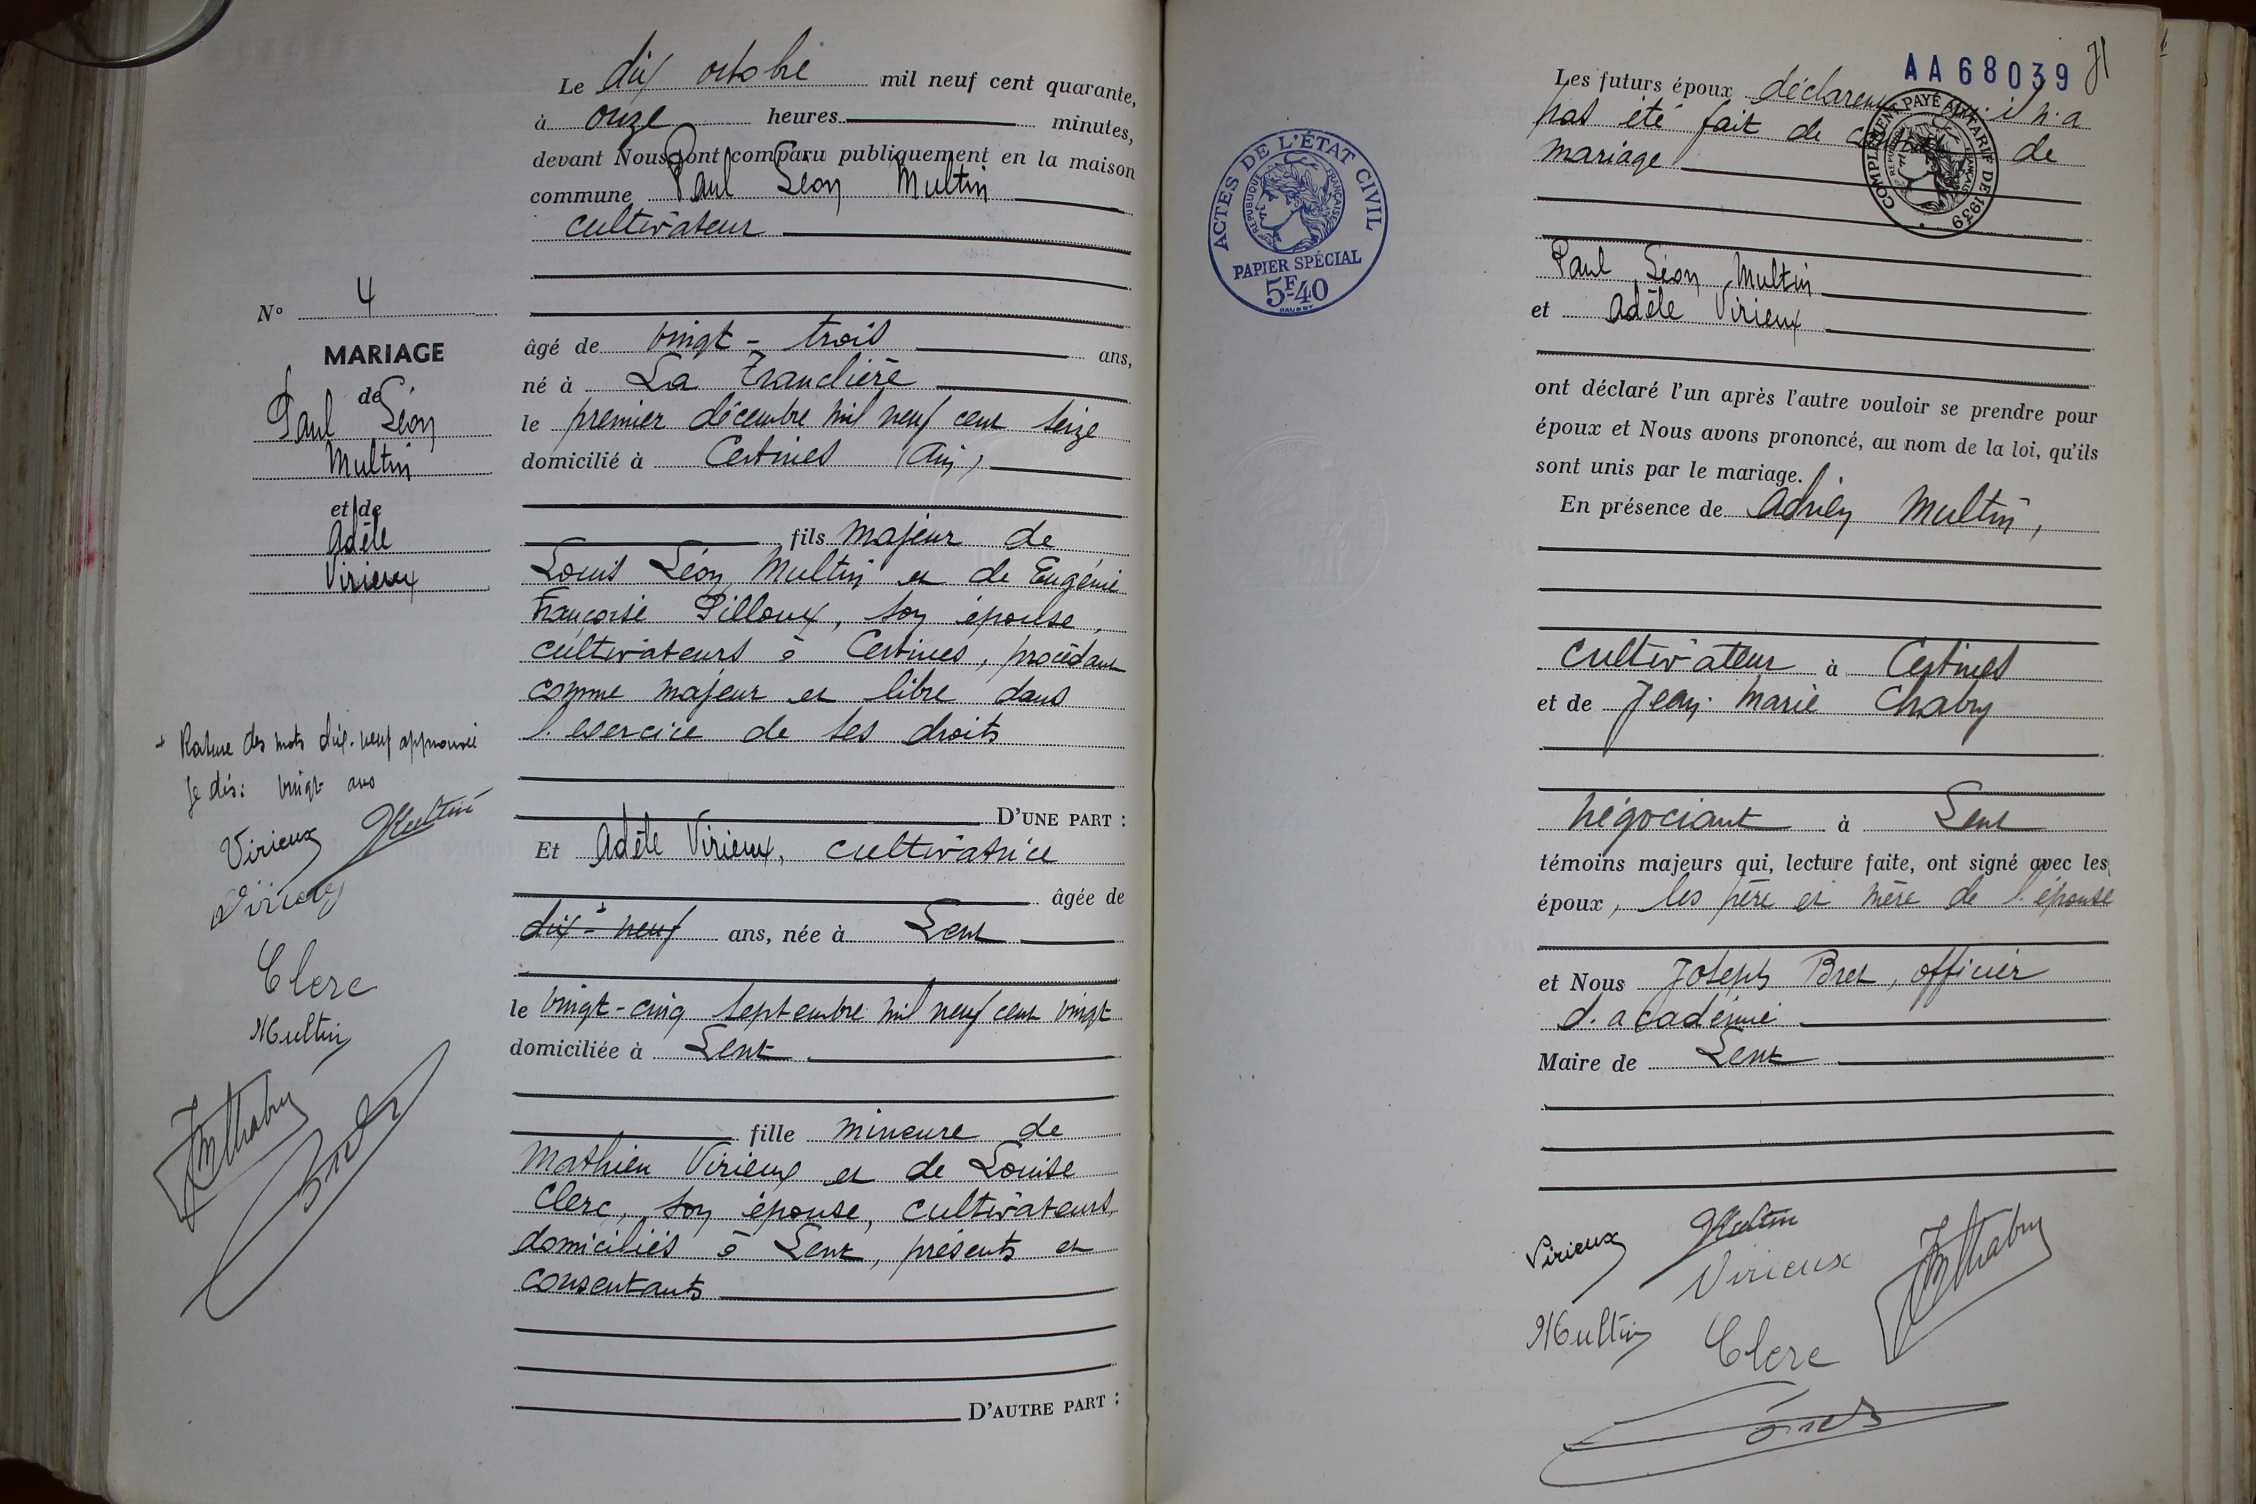 Le dix octobre mil neuf cent quarante,
à onze heures minutes,
devant Nous ont comparu publiquement en la maison
commune Paul Léon Multin
cultivateur
âgé de vingt-trois ans,
né à La Tranclière
le premier décembre mil neuf cent seize
domicilié à Certines (Ain)
fils majeur de
Louis Léon Multin et de Eugénie
Françoise Pilloux, son épouse,
cultivateurs à Certines, procédant
comme majeur et libre dans
l'exercice de ses droits
D'UNE PART :
Et Adèle Virieux, cultivatrice
âgée de
dix-neuf ans, née à Lent
le vingt-cinq septembre mil neuf cent vingt
domiciliée à Lent
fille mineure de
Mathieu Virieux et de Louise
Clerc, son épouse, cultivateurs,
domiciliés à Lent, présents et
consentants
D'AUTRE PART :
Nº 4
MARIAGE
de
Paul Léon
Multin
et de
Adèle
Virieux
+ Rature des mots dix-neuf approuvée
Je dis: vingt ans
Virieux Multin
Virieux
Clerc
Multin
JM Chabry
Bret
AA68039 71
ACTES DE L'ÉTAT CIVIL
RÉPUBLIQUE FRANÇAISE
PAPIER SPÉCIAL
5F40
COMPLÉMENT PAYÉ AU TARIF DE 1939
RÉPUBLIQUE FRANÇAISE
Les futurs époux déclarent qu'il n'a
pas été fait de contrat de
mariage
Paul Léon Multin
et Adèle Virieux
ont déclaré l'un après l'autre vouloir se prendre pour
époux et Nous avons prononcé, au nom de la loi, qu'ils
sont unis par le mariage.
En présence de Adrien Multin,
cultivateur à Certines
et de Jean-Marie Chabry
négociant à Lent
témoins majeurs qui, lecture faite, ont signé avec les
époux, les père et mère de l'épouse
et Nous Joseph Bret, officier
d'académie
Maire de Lent
Virieux Multin
Virieux JM Chabry
Multin Clerc
Bret